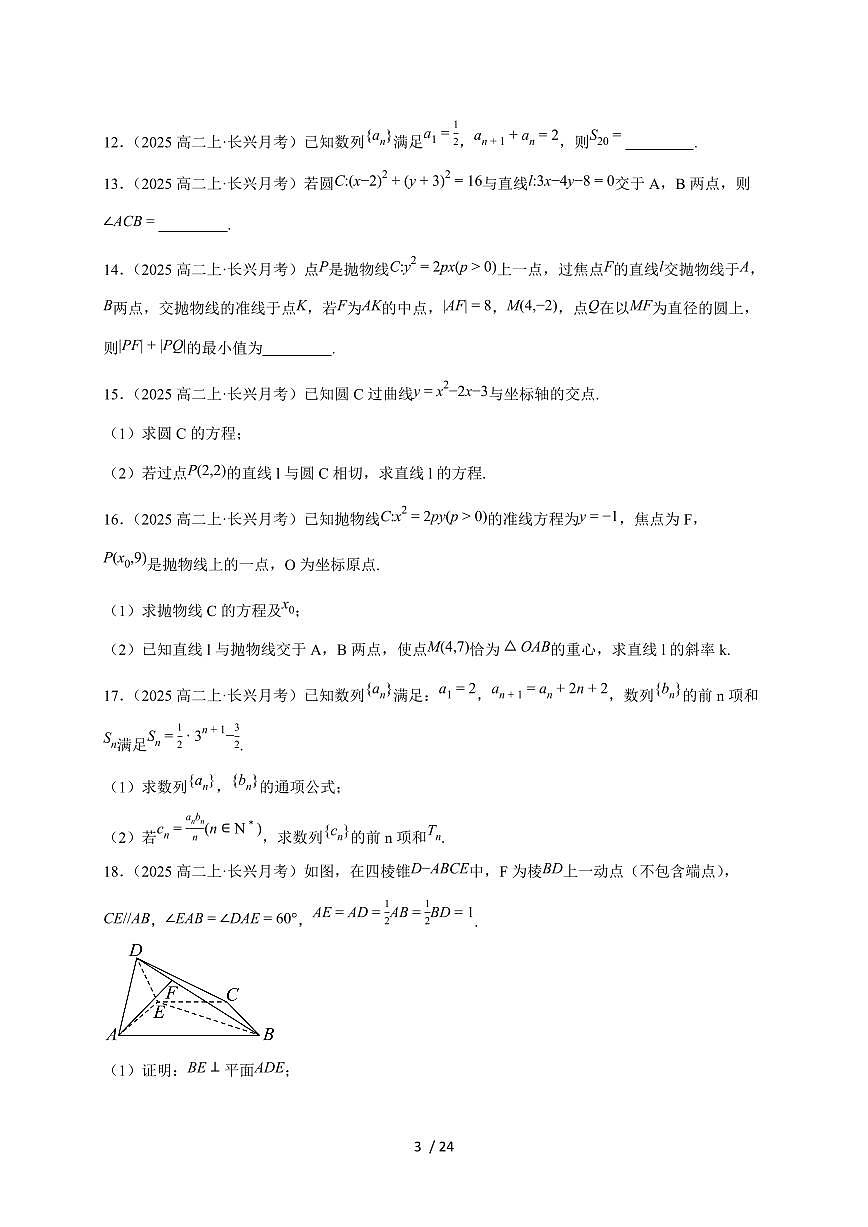 12.（2025 高二上·长兴月考）已知数列{aₙ}满足a₁ = 1/2，aₙ₊₁ + aₙ = 2，则S₂₀ = _________.
13.（2025 高二上·长兴月考）若圆C:(x−2)² + (y + 3)² = 16与直线l:3x−4y−8 = 0交于 A，B 两点，则
∠ACB = _________.
14.（2025 高二上·长兴月考）点P是抛物线C:y² = 2px(p > 0)上一点，过焦点F的直线l交抛物线于A，
B两点，交抛物线的准线于点K，若F为AK的中点，|AF| = 8，M(4,−2)，点Q在以MF为直径的圆上，
则|PF| + |PQ|的最小值为_________.
15.（2025 高二上·长兴月考）已知圆 C 过曲线y = x²−2x−3与坐标轴的交点.
（1）求圆 C 的方程；
（2）若过点P(2,2)的直线 l 与圆 C 相切，求直线 l 的方程.
16.（2025 高二上·长兴月考）已知抛物线C:x² = 2py(p > 0)的准线方程为y = −1，焦点为 F，
P(x₀,9)是抛物线上的一点，O 为坐标原点.
（1）求抛物线 C 的方程及x₀；
（2）已知直线 l 与抛物线交于 A，B 两点，使点M(4,7)恰为 △ OAB的重心，求直线 l 的斜率 k.
17.（2025 高二上·长兴月考）已知数列{aₙ}满足：a₁ = 2，aₙ₊₁ = aₙ + 2n + 2，数列{bₙ}的前 n 项和
Sₙ满足Sₙ = 1/2 · 3ⁿ⁺¹−3/2.
（1）求数列{aₙ}，{bₙ}的通项公式；
（2）若cₙ = aₙbₙ/n (n ∈ N*)，求数列{cₙ}的前 n 项和Tₙ.
18.（2025 高二上·长兴月考）如图，在四棱锥D−ABCE中，F 为棱BD上一动点（不包含端点），
CE//AB，∠EAB = ∠DAE = 60°，AE = AD = 1/2AB = 1/2BD = 1.
D
F
C
E
A
B
（1）证明：BE ⊥ 平面ADE；
3 / 24